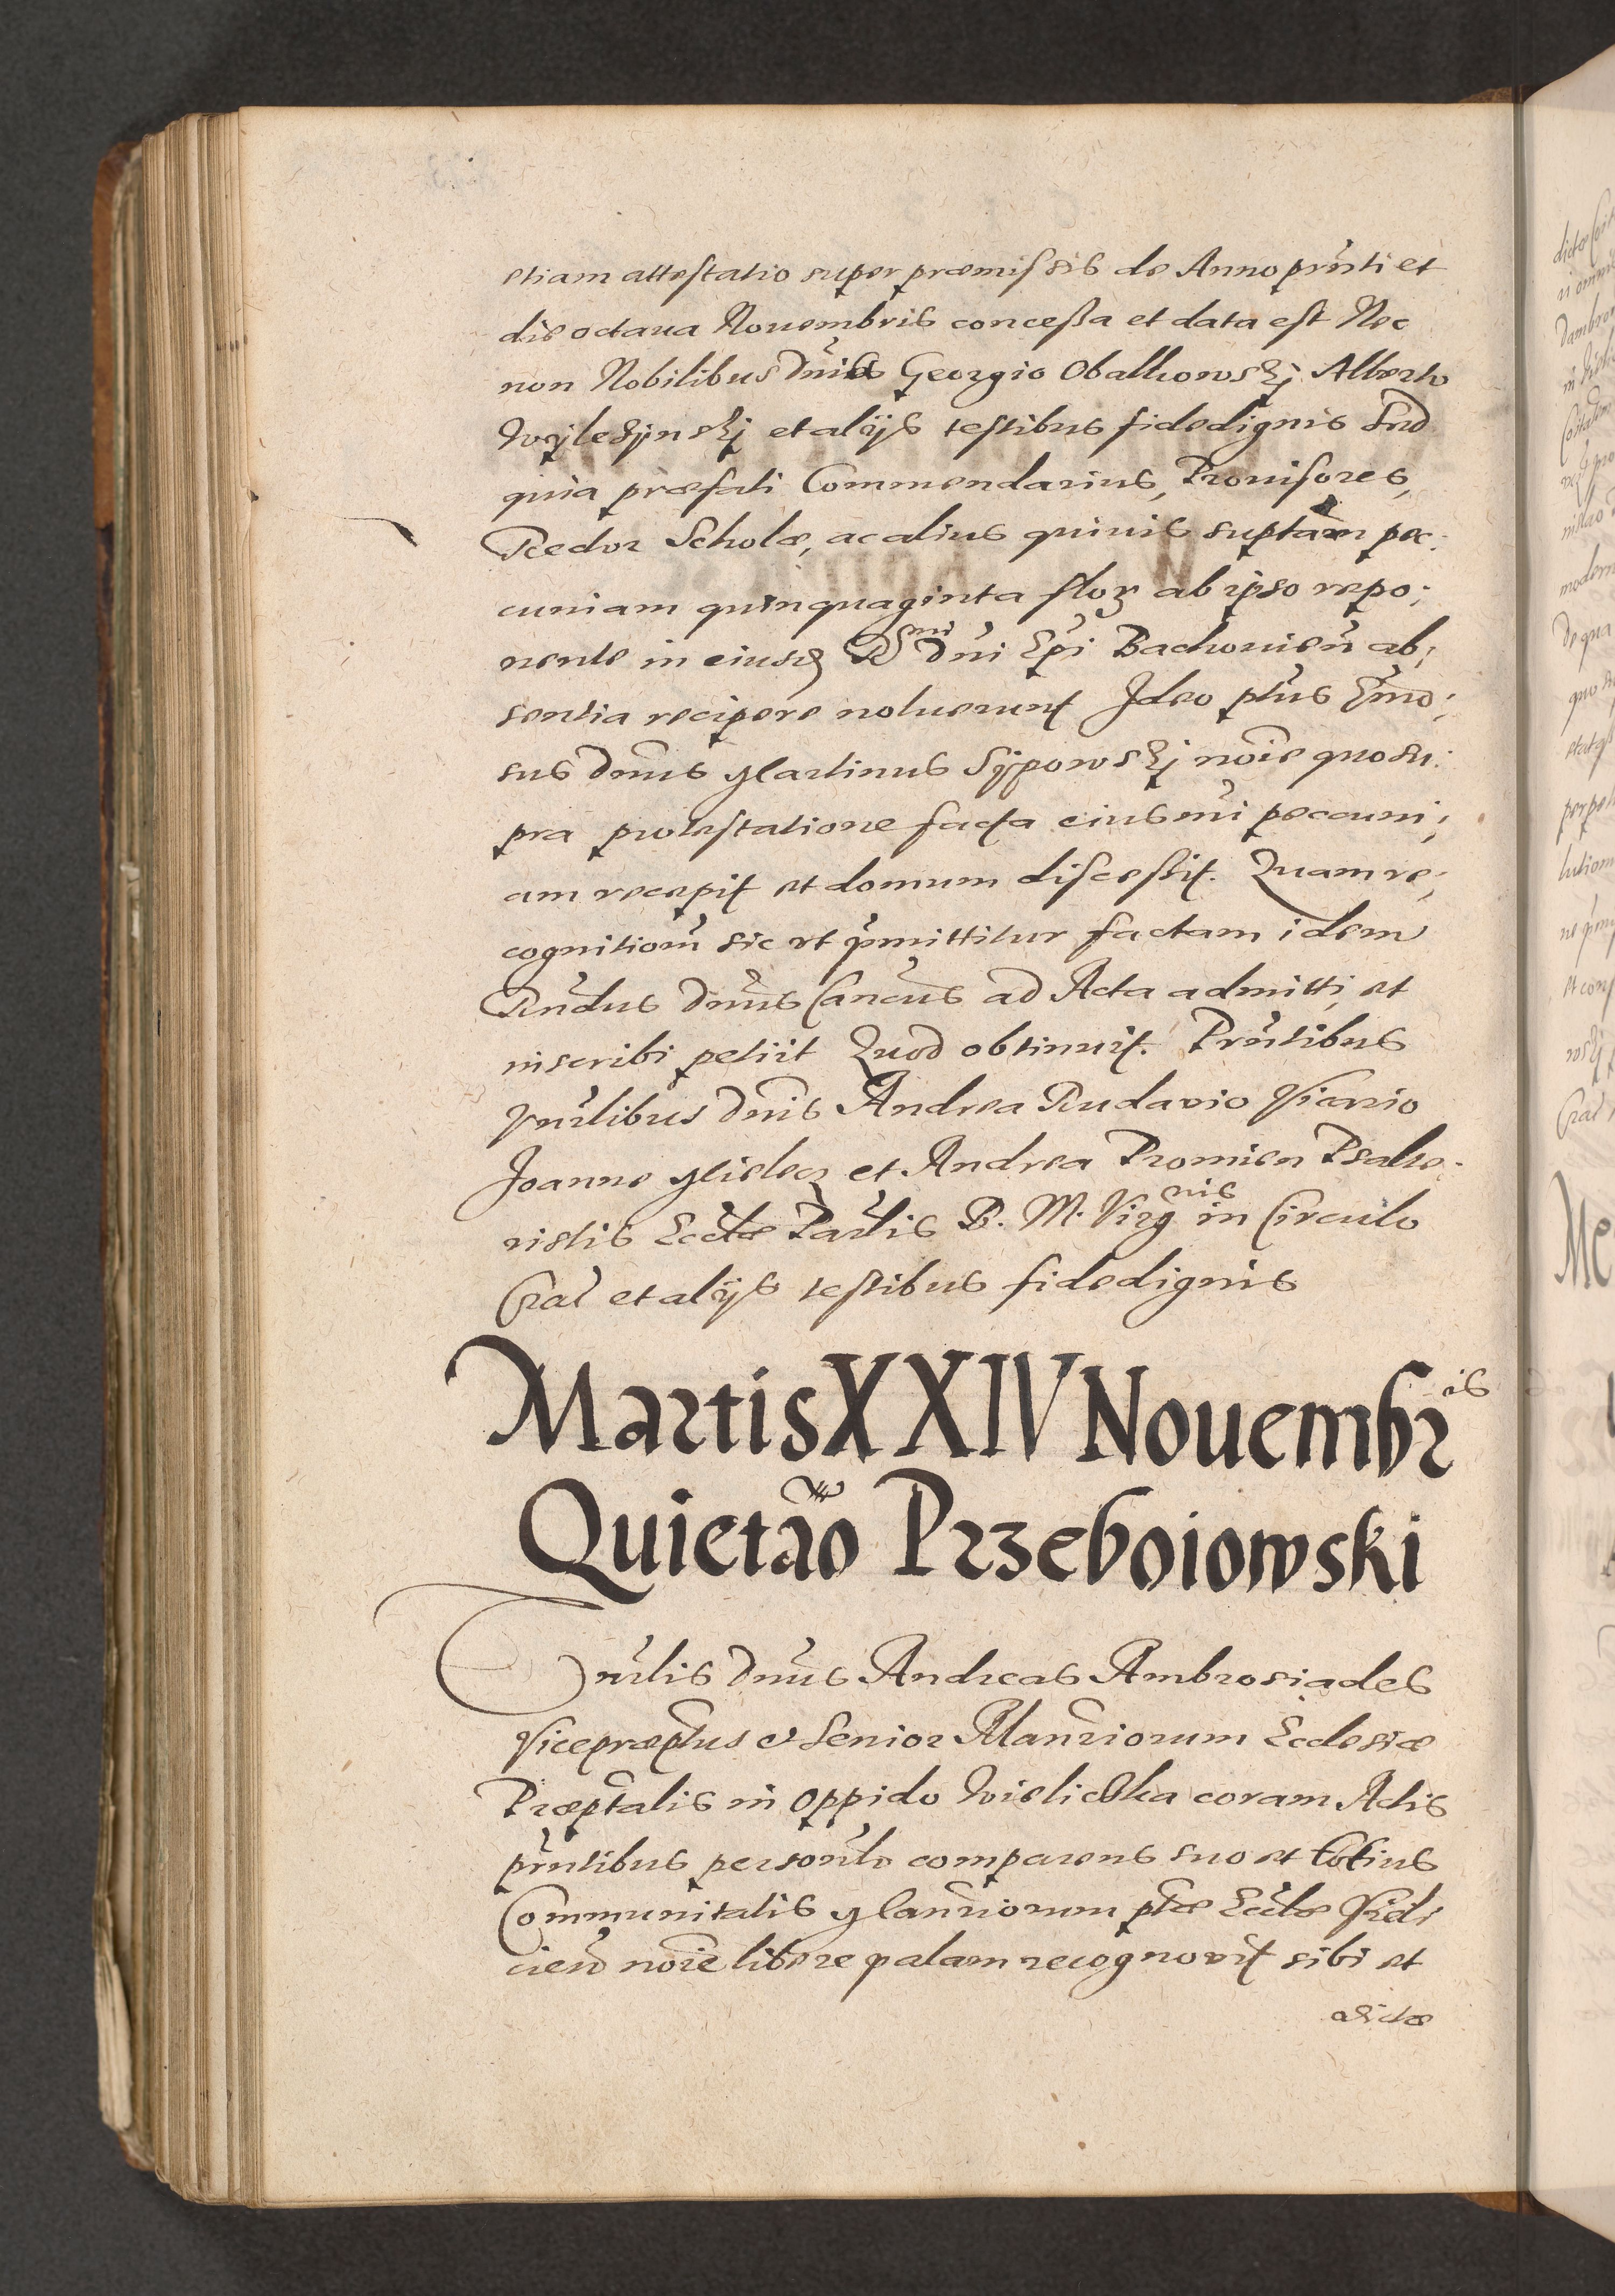 etiam attestatio super præmissis de Anno prnti et
die octaua Nouembris concessa et data est Nec
non Nobilibus Dnis Georgio Obalkowskj Alberto
Wylezynskj et alijs testibus fidedignis Sed
quia præfati Commendarius, Prouisores,
Rector Scholæ, ac alius quiuis suptam pec:
cuniam quinquaginta flor ab ipso repo:
nente in eiusd Rssmi Dni Epi Bachouien ab:
sentia recipere noluerunt Ideo ptus Gnro:
sus Dnus Martinus Sypowskj noie quo su:
pra protestatione facta eiusmi pecuni:
am recepit et domum discessit. Quam re:
cognitiom sic vt pmittitur factam idem
Rndus Dnus Cancus ad Acta admitti et
inscribi petiit Quod obtinuit. Prntibus
Vnrlibus Dnis Andrea Rudawio Vicario
Joanne Mielecz et Andrea Promien Psalte:
ristis Ecctæ Parlis B. M. Virgnis in Circulo
Crac et alijs testibus fidedignis
Martis XXIV Nouembris
Quietao Przeboiowski
Vnrlis Dnus Andreas Ambrosiades
Vicepræptus & Senior Mansriorum Ecclesiæ
Præptalis in Oppido Wieliczka coram Actis
prntibus personlr comparens suo et totius
Communitatis Mansriorum ptæ Ecctæ Vieli
cien noie libere palam recognovit sibi et
dictæ